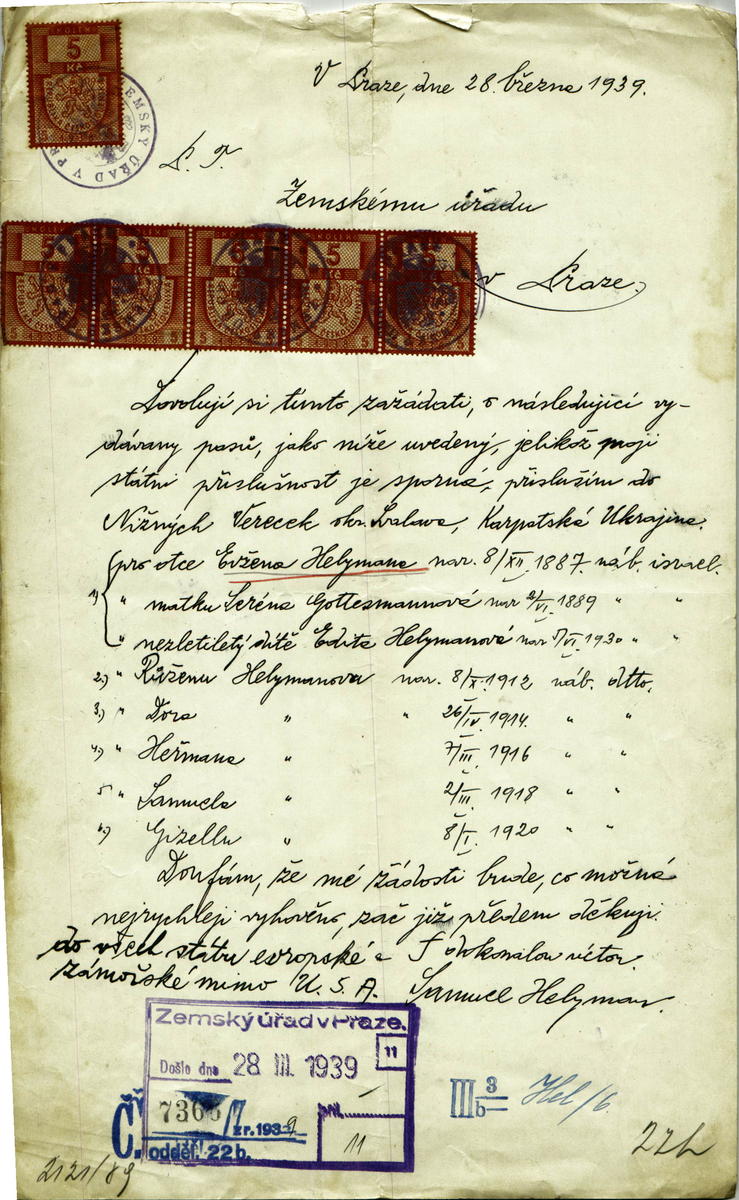 KOLEK
5
Kč
ZEMSKÝ ÚŘAD V PR
V Praze, dne 28. března 1939.
P. T.
Zemskému úřadu
v Praze.
5 5 5 5 5
Kč Kč Kč
Dovoluji si tímto zažádati, o následující vy-
dávany pasů, jako níže uvedený, jelikož moji
státni příslušnost je sporná, přísluším do
Nižných Verecek okr. Svalava, Karpatská Ukrajina.
1) pro otce Evžena Helymana nar. 8/XII. 1887. náb. israel.
" matku Seréna Gottesmannová nar 2/VI. 1889 " "
" nezletiletý dítě Edita Helymanová nar 5/VI. 1930 " "
2.) " Růženu Helymanova nar. 8/X. 1912 náb. dtto.
3.) " Dora " " 26/IV. 1914. " "
4.) " Heřmana " 7/III. 1916 " "
5 " Samuela " 2/III. 1918 " "
6.) Gizellu " 8/I. 1920 " "
Doufám, že mé žádosti bude, co možná
nejrychleji vyhověno, zač již předem děkuji.
do všech státu evropské a S dokonalou úctou
zámořské mimo U. S. A. Samuel Helyman.
Zemský úřad v Praze.
Došlo dne 28 III. 1939
11
Č. z r. 1939
příl.
odděl. 22 b. 11
III b 3 Hel/6.
22b
2121/89